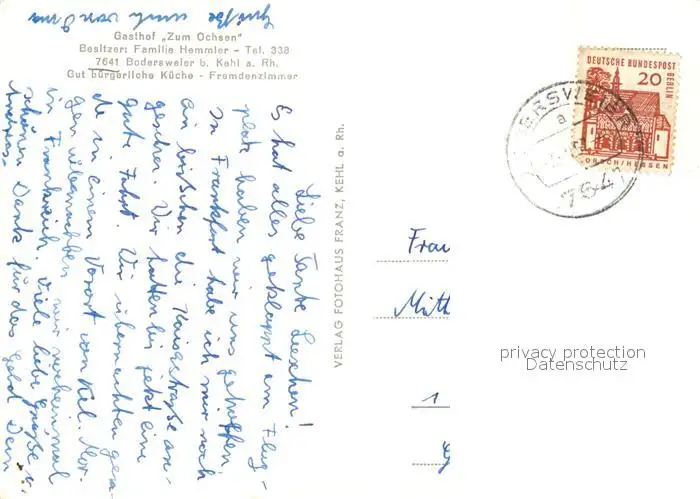 Grüße auch von Oma
Gasthof „Zum Ochsen"
Besitzer: Familie Hemmler – Tel. 338
7641 Bodersweier b. Kehl a. Rh.
Gut bürgerliche Küche – Fremdenzimmer
Liebe Tante Lieschen!
Es hat alles geklappt am Flug-
platz haben wir uns getroffen.
In Frankfurt habe ich mir noch
ein bißchen die Kaiserstraße an-
gesehen. Wir hatten bis jetzt eine
gute Fahrt. Wir übernachten gera-
de in einem Vorort von Kel. Mor-
gen übernachten wir
in Frankreich. Viele liebe Grüße u.
schönen Dank für das Geld Dein
Andreas
VERLAG FOTOHAUS FRANZ, KEHL a. Rh.
DEUTSCHE BUNDESPOST
BERLIN
20
LORSCH/HESSEN
ERSWEIER
a
7641
Frau
Mitt
1
privacy protection
Datenschutz